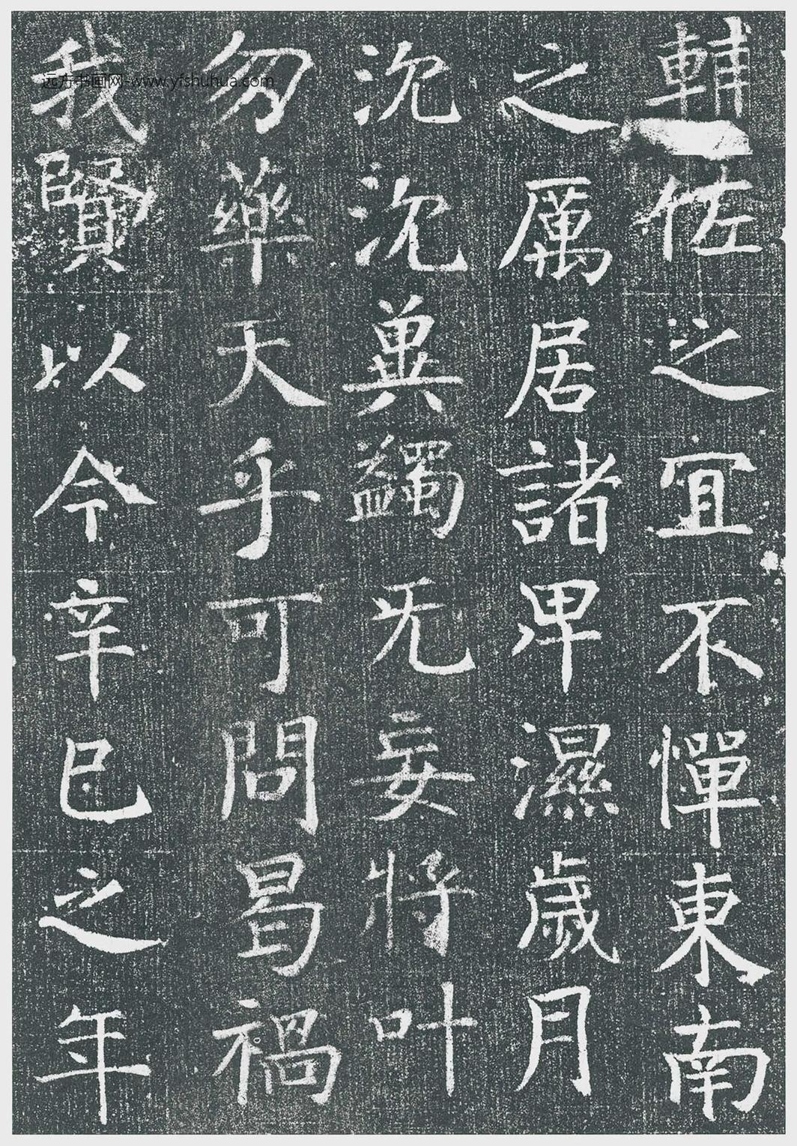 輔佐之宜不憚東南
之厲居諸溼濕歲月
沉沉冀蠲无妄將叶
勿藥天乎可問曷禍
我賢以今辛巳之年
远方书画网-www.yfshuhua.com